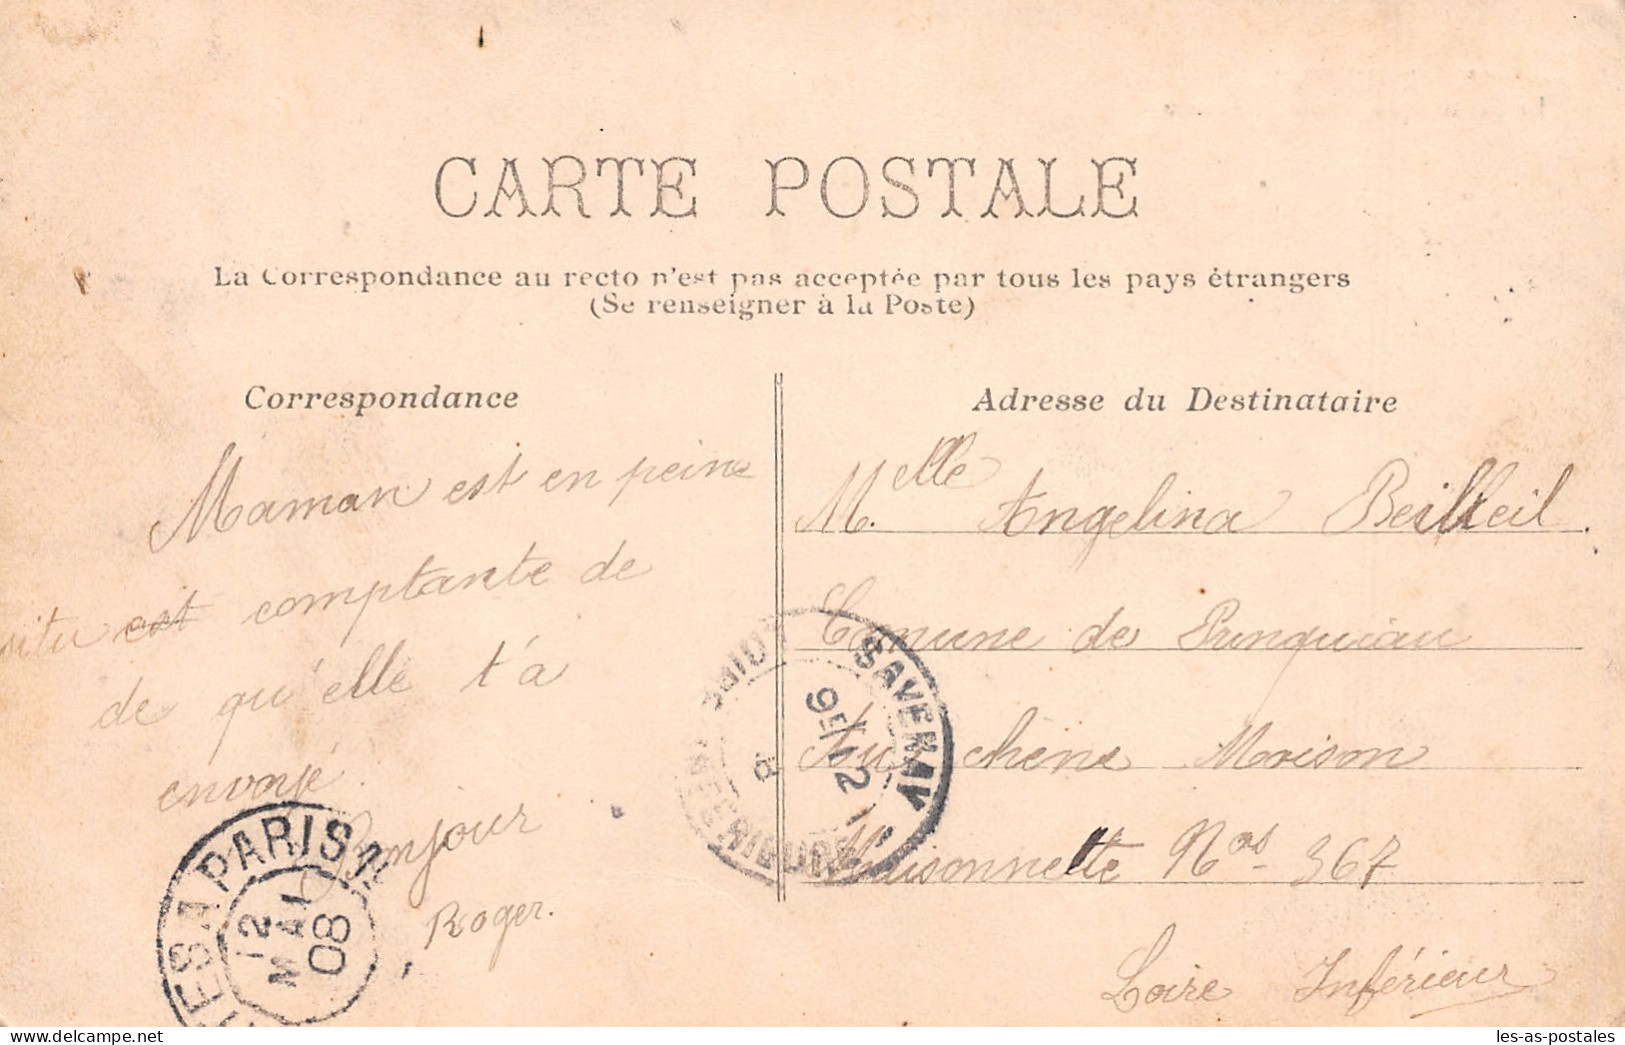 CARTE POSTALE
La Correspondance au recto n'est pas acceptée par tous les pays étrangers
(Se renseigner à la Poste)
Correspondance
Maman est en peine
situ est comptante de
de qu'elle t'a
envoyé
Bonjour
Roger.
Adresse du Destinataire
Melle Angelina Beilleil
Comune de Prinquiau
Au chêne Maison
Maisonnette Nos 367
Loire Inférieur
SAVENAY
LOIRE INFERIEURE
95 / 12
8
ES A PARIS 1
12
MAI
08
les-as-postales